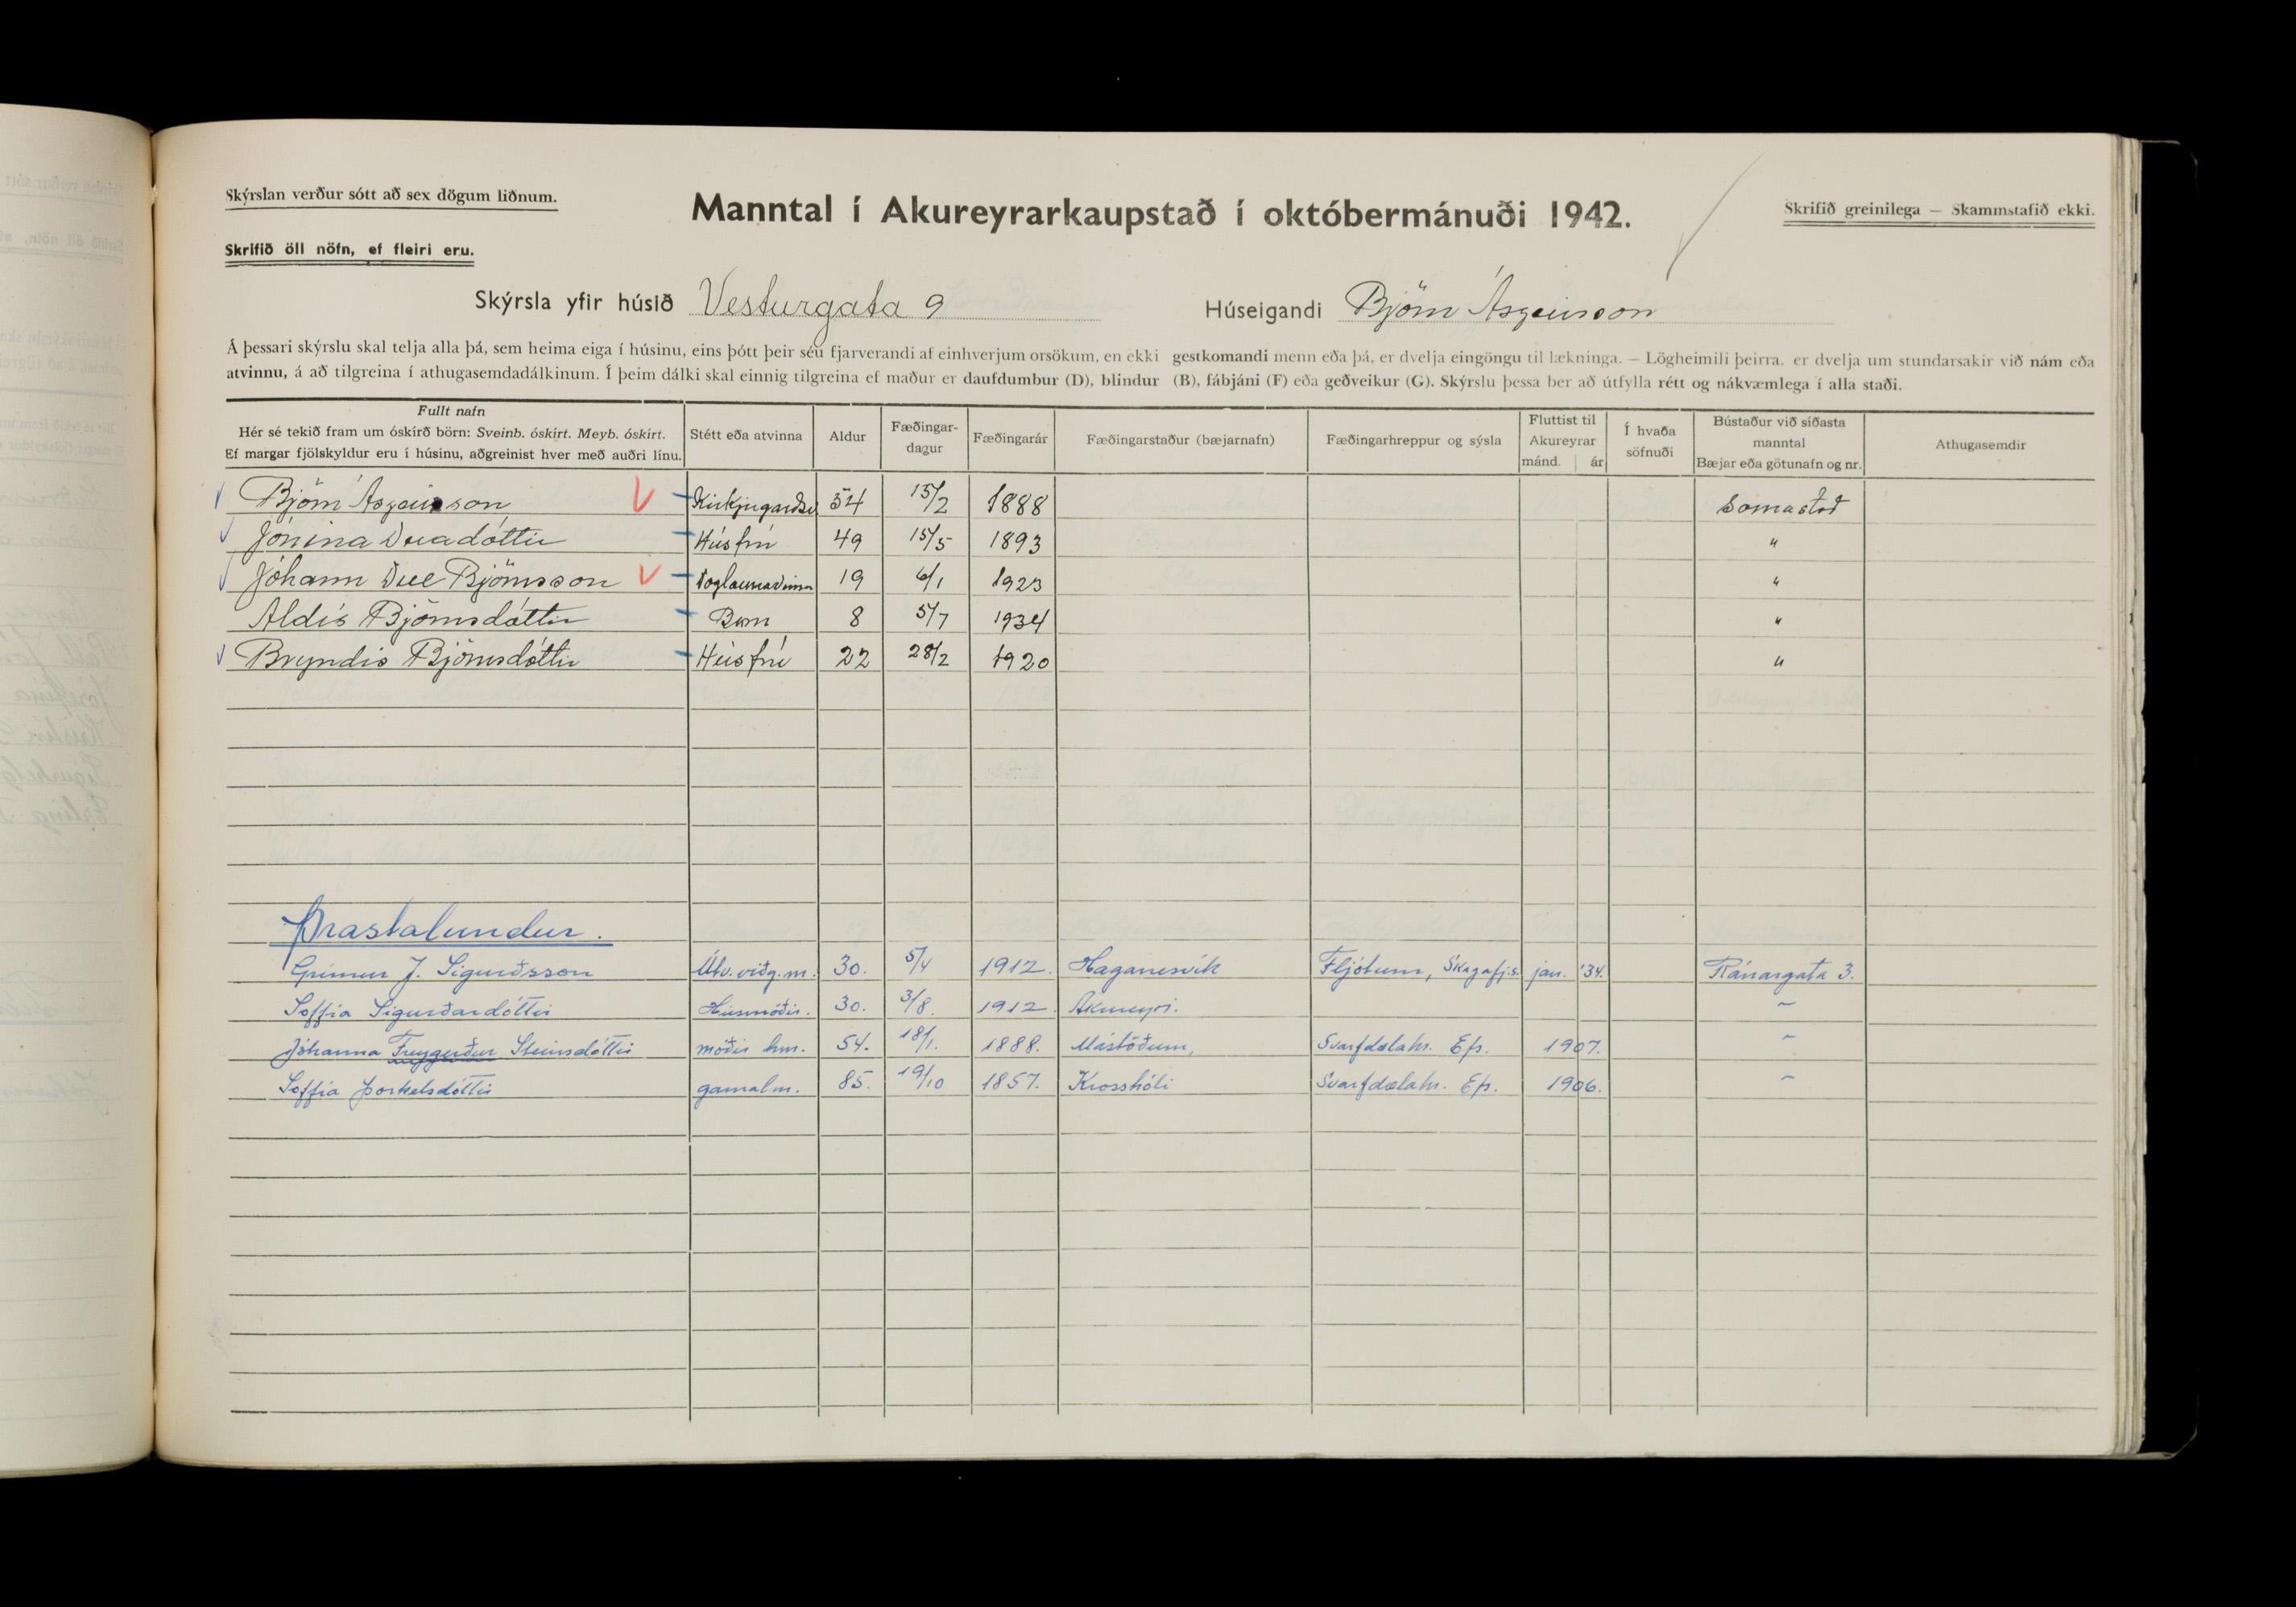 Skýrslan verður sótt að sex dögum liðnum.
Manntal í Akureyrarkaupstað í októbermánuði 1942.
Skrifið greinilega — Skammstafið ekki.
Skrifið öll nöfn, ef fleiri eru.
Skýrsla yfir húsið Vesturgata 9 Húseigandi Björn Ásgeirsson
Á þessari skýrslu skal telja alla þá, sem heima eiga í húsinu, eins þótt þeir séu fjarverandi af einhverjum orsökum, en ekki gestkomandi menn eða þá, er dvelja eingöngu til lækninga. — Lögheimili þeirra. er dvelja um stundarsakir við nám eða
atvinnu, á að tilgreina í athugasemdadálkinum. Í þeim dálki skal einnig tilgreina ef maður er daufdumbur (D), blindur (B), fábjáni (F) eða geðveikur (G). Skýrslu þessa ber að útfylla rétt og nákvæmlega í alla staði.
Fullt nafn
Hér sé tekið fram um óskírð börn: Sveinb. óskírt. Meyb. óskírt.
Ef margar fjölskyldur eru í húsinu, aðgreinist hver með auðri línu.
Stétt eða atvinna
Aldur
Fæðingar-
dagur
Fæðingarár
Fæðingarstaður (bæjarnafn)
Fæðingarhreppur og sýsla
Fluttist til
Akureyrar
mánd. ár
Í hvaða
söfnuði
Bústaður við síðasta
manntal
Bæjar eða götunafn og nr.
Athugasemdir
Björn Ásgeirsson 54 15/2 1888 Samastað
Jónína Dúadóttir Húsfrú 49 15/5 1893 "
Jóhann Dúe Björnsson 19 6/1 1923 "
Aldís Björnsdóttir Barn 8 5/7 1934 "
Bryndís Björnsdóttir Húsfrú 22 28/2 1920 "
Þrastalundur.
Grímur J. Sigurðsson Útv.viðg.m. 30. 5/4 1912. Haganesvík Fljótum, Skagafj.s. jan. '34. Ránargata 3.
Soffía Sigurðardóttir Húsmóðir. 30. 3/8. 1912. Akureyri. ~
Jóhanna Freygerður Steinsdóttir móðir hm. 54. 18/1. 1888. Másstöðum, Svarfdælahr. Ef. 1907. ~
Soffía Þorkelsdóttir gamalm. 85. 19/10 1857. Krosshóli Svarfdælahr. Ef. 1906. ~